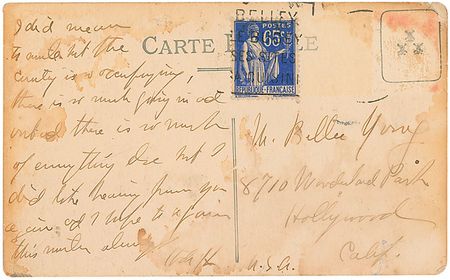 I did mean
to write but the
country is so occupying,
there is so much going in and
out and there is so much
of everything else but I
did like hearing from you
again, and I hope to again
this winter always
CARTE POSTALE
BELLEY
POSTES
65c
REPUBLIQUE FRANÇAISE
8710 Wonderland Park
Hollywood
Calif.
U.S.A.